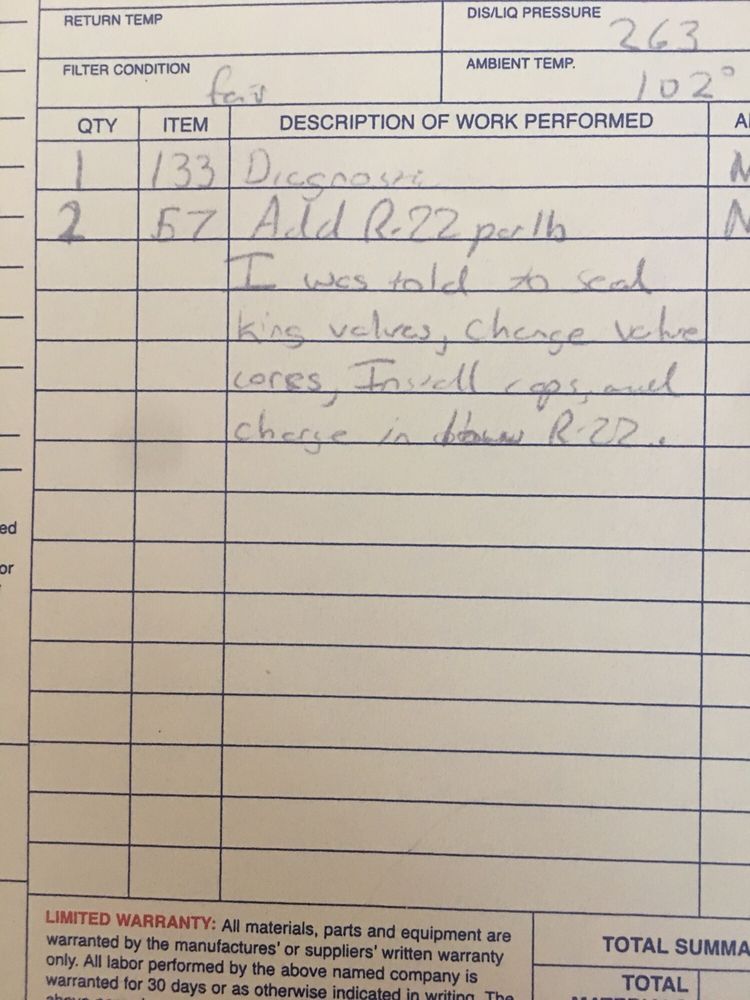 RETURN TEMP
DIS/LIQ PRESSURE 263
FILTER CONDITION fair
AMBIENT TEMP. 102°
QTY ITEM DESCRIPTION OF WORK PERFORMED A
1 133 Diagnostic N
2 57 Add R-22 per lb N
I was told to seal
king valves, Change valve
cores, Install caps, and
charge in R-22.
ed
or
LIMITED WARRANTY: All materials, parts and equipment are
warranted by the manufactures' or suppliers' written warranty
only. All labor performed by the above named company is
warranted for 30 days or as otherwise indicated in writing. The
TOTAL SUMMA
TOTAL